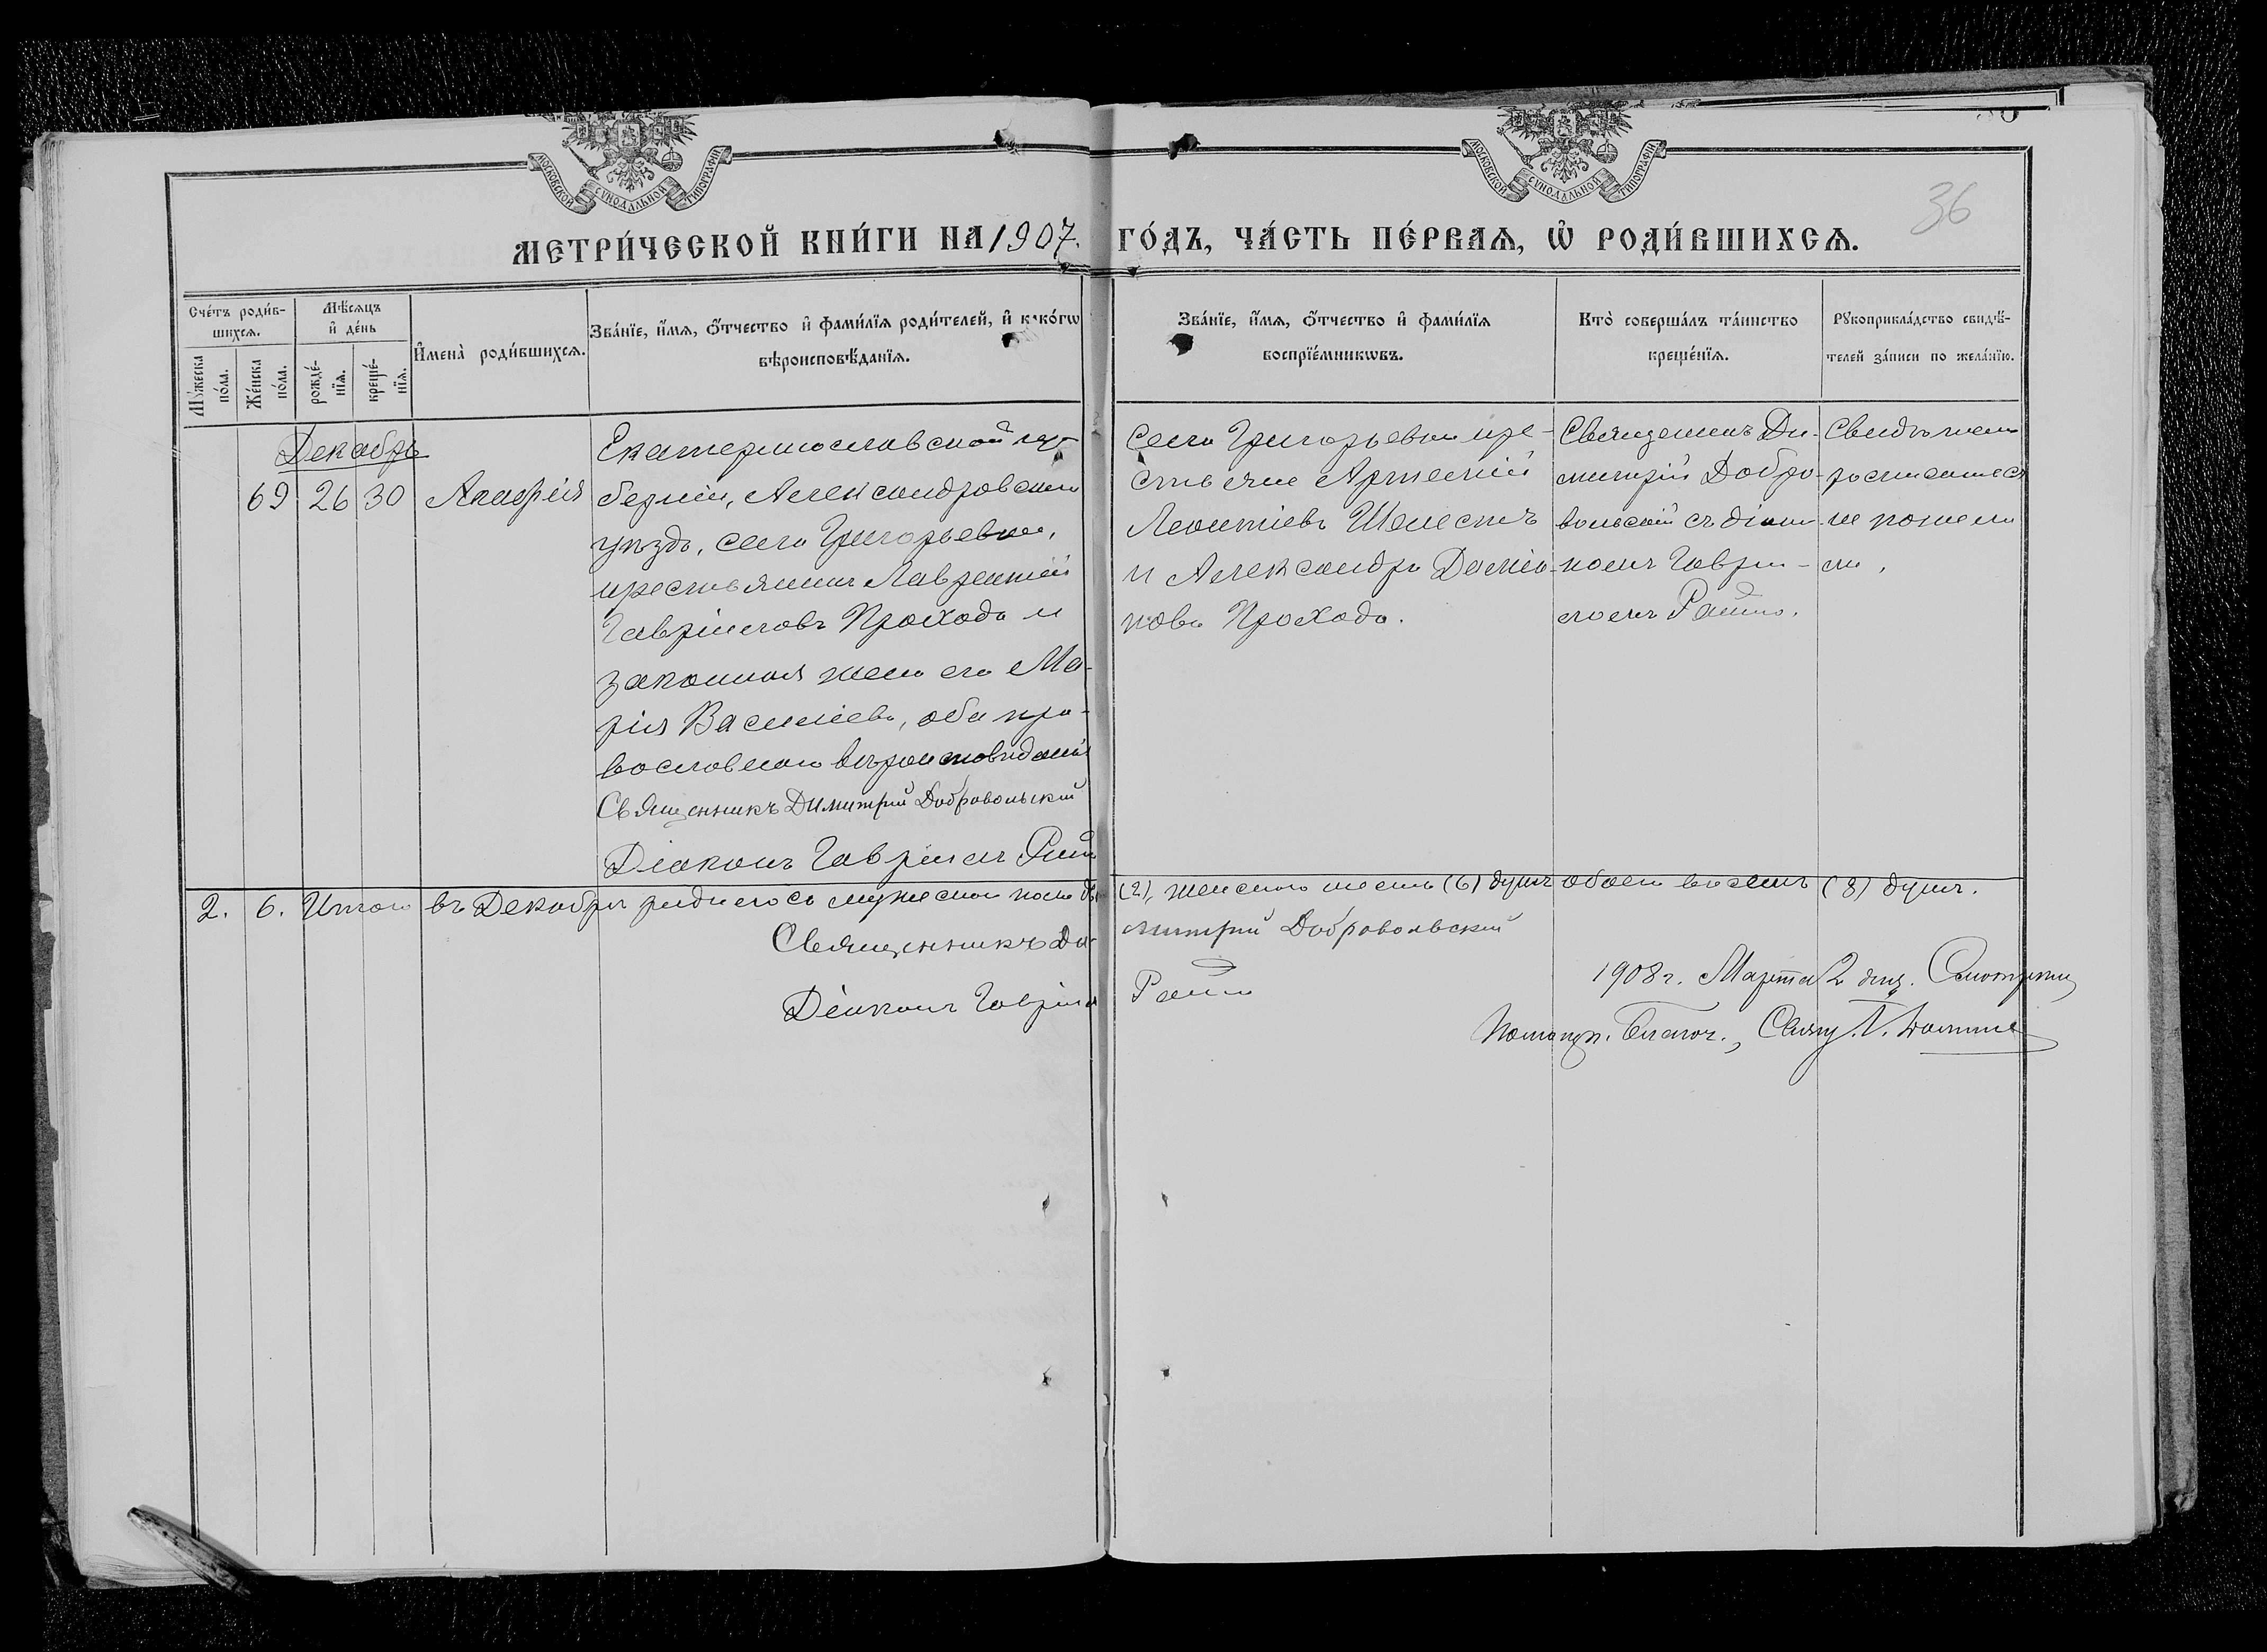 МОСКОВСКОЙ СѴНОДАЛЬНОЙ ТИПОГРАФІИ
МОСКОВСКОЙ СѴНОДАЛЬНОЙ ТИПОГРАФІИ
36
МЕТРИ́ЧЕСКОЙ КНИ́ГИ НА 1907. ГО́ДЪ, ЧА́СТЬ ПЕ́РВАѦ, Ѡ РОДИ́ВШИХСѦ.
Сче́тъ роди́в-
шихсѧ.
Мꙋ́жеска по́ла.
Же́нска по́ла.
Мѣ́сѧцъ
и҆ де́нь
рожде́-
нїѧ.
креще́-
нїѧ.
И҆мена̀ роди́вшихсѧ.
Зва́нїе, и҆́мѧ, ѻ҆́тчество и҆ фами́лїѧ роди́телей, и҆ како́гѡ
вѣроисповѣ́данїѧ.
Зва́нїе, и҆́мѧ, ѻ҆́тчество и҆ фами́лїѧ
воспрїе́мникѡвъ.
Кто̀ соверша́лъ та́инство
креще́нїѧ.
Рꙋкоприкла́дство свидѣ́-
телей за́писи по жела́нїю.
Декабрь
69 26 30 Анафія
Екатеринославской гу-
берніи, Александровскаго
уѣзда, села Григорьевки,
крестьянинъ Лаврентій
Гавріиловъ Проходa и
законная жена его Ма-
рія Василіева, оба пра-
вославнаго вѣроисповѣданія
Священникъ Димитрій Добровольскій
Діаконъ Гавріилъ
Села Григорьевки кре-
стьяне Артемій
Леонтіевъ Шелестъ
и Александра Даміа-
нова Прохода.
Священникъ Ди-
митрій Добро-
вольскій съ діа-
кономъ Гаврі-
иломъ
Свидѣтели
росписаться
не пожела-
ли.
2. 6. Итого въ Декабрѣ родилось мужескаго пола (2), женскаго шесть (6) душъ обоего восемь (8) душъ.
Священникъ Димитрій Добровольскій
Діаконъ Гавріилъ
1908 г. Марта 2 дня.
Благоч., Свящ.